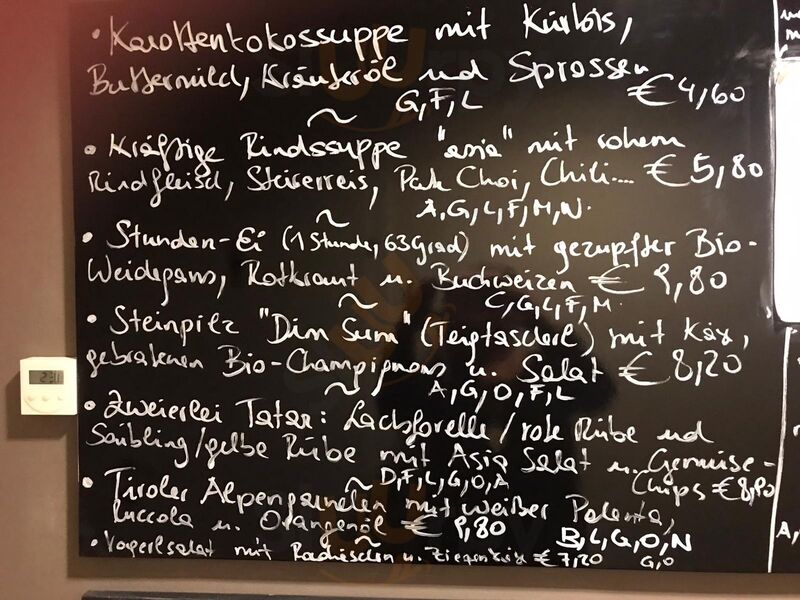 • Karottenkokossuppe mit Kürbis,
Buttermilch, Kräuteröl und Sprossen
G, F, L € 4,60
~
• Kräftige Rindssuppe "asia" mit rohem
Rindfleisch, Steirerreis, Pak Choi, Chili.... € 5,80
~ A, G, L, F, M, N.
• Stunden-Ei (1 Stunde, 63 Grad) mit gezupfter Bio-
Weidegans, Rotkraut u. Buchweizen € 9,80
~ C, G, L, F, M.
• Steinpilz "Dim Sum" (Teigtascherl) mit
gebratenen Bio-Champignons u. Salat € 8,20
~ A, G, O, F, L
• Zweierlei Tatar: Lachsforelle / rote Rübe und
Saibling / gelbe Rübe mit Asia Salat u. Gemüse-
~ D, F, L, G, O, A Chips € 8,90
• Tiroler Alpengarnelen mit weißer Polenta,
Ruccola u. Orangenöl € 9,80
~ B, L, G, O, N
• Vogerlsalat mit Radieschen u. Ziegenkäse € 7,20
G, O
A,